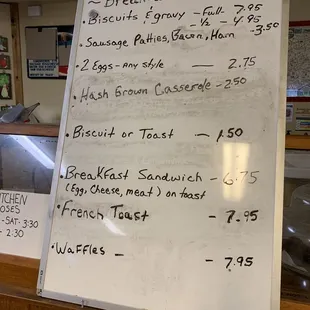 • Biscuits & gravy - Full - 7.95
- ½ - 4.95
• Sausage Patties, Bacon, Ham - 3.50
• 2 Eggs - Any style - 2.75
• Hash Brown Casserole - 2.50
• Biscuit or Toast - 1.50
• Breakfast Sandwich - 6.75
(Egg, Cheese, meat) on toast
• French Toast - 7.95
• Waffles - - 7.95
- SAT - 3:30
- 2:30